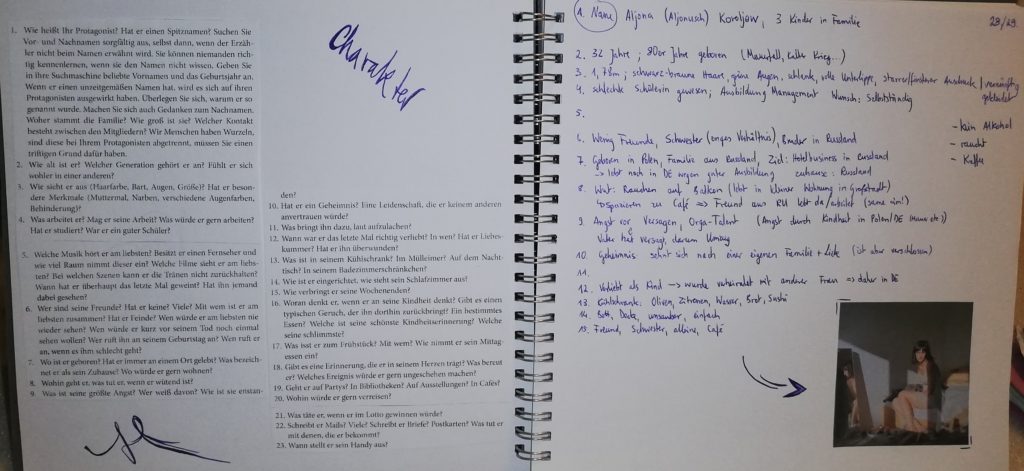 1. Wie heißt Ihr Protagonist? Hat er einen Spitznamen? Suchen Sie
Vor- und Nachnamen sorgfältig aus, selbst dann, wenn der Erzäh-
ler nicht beim Namen erwähnt wird. Sie können niemanden rich-
tig kennenlernen, wenn sie den Namen nicht wissen. Geben Sie
in ihre Suchmaschine beliebte Vornamen und das Geburtsjahr an.
Wenn er einen unzeitgemäßen Namen hat, wird es sich auf ihren
Protagonisten ausgewirkt haben. Überlegen Sie sich, warum er so
genannt wurde. Machen Sie sich auch Gedanken zum Nachnamen.
Woher stammt die Familie? Wie groß ist sie? Welcher Kontakt
besteht zwischen den Mitgliedern? Wir Menschen haben Wurzeln,
sind diese bei Ihrem Protagonisten abgetrennt, müssen Sie einen
triftigen Grund dafür haben.
2. Wie alt ist er? Welcher Generation gehört er an? Fühlt er sich
wohler in einer anderen?
3. Wie sieht er aus (Haarfarbe, Bart, Augen, Größe)? Hat er beson-
dere Merkmale (Muttermal, Narben, verschiedene Augenfarben,
Behinderung)?
4. Was arbeitet er? Mag er seine Arbeit? Was würde er gern arbeiten?
Hat er studiert? War er ein guter Schüler?
5. Welche Musik hört er am liebsten? Besitzt er einen Fernseher und
wie viel Raum nimmt dieser ein? Welche Filme sieht er am liebs-
ten? Bei welchen Szenen kann er die Tränen nicht zurückhalten?
Wann hat er überhaupt das letzte Mal geweint? Hat ihn jemand
dabei gesehen?
6. Wer sind seine Freunde? Hat er keine? Viele? Mit wem ist er am
liebsten zusammen? Hat er Feinde? Wen würde er am liebsten nie
wieder sehen? Wen würde er kurz vor seinem Tod noch einmal
sehen wollen? Wer ruft ihn an seinem Geburtstag an? Wen ruft er
an, wenn es ihm schlecht geht?
7. Wo ist er geboren? Hat er immer an einem Ort gelebt? Was bezeich-
net er als sein Zuhause? Wo würde er gern wohnen?
8. Wohin geht er, was tut er, wenn er wütend ist?
9. Was ist seine größte Angst? Wer weiß davon? Wie ist sie enstan-
Charakter
den?
10. Hat er ein Geheimnis? Eine Leidenschaft, die er keinem anderen
anvertrauen würde?
11. Was bringt ihn dazu, laut aufzulachen?
12. Wann war er das letzte Mal richtig verliebt? In wen? Hat er Liebes-
kummer? Hat er ihn überwunden?
13. Was ist in seinem Kühlschrank? Im Mülleimer? Auf dem Nacht-
tisch? In seinem Badezimmerschränkchen?
14. Wie ist er eingerichtet, wie sieht sein Schlafzimmer aus?
15. Wie verbringt er seine Wochenenden?
16. Woran denkt er, wenn er an seine Kindheit denkt? Gibt es einen
typischen Geruch, der ihn dorthin zurückbringt? Ein bestimmtes
Essen? Welche ist seine schönste Kindheitserinnerung? Welche
seine schlimmste?
17. Was isst er zum Frühstück? Mit wem? Wie nimmt er sein Mittag-
essen ein?
18. Gibt es eine Erinnerung, die er in seinem Herzen trägt? Was bereut
er? Welches Ereignis würde er gern ungeschehen machen?
19. Geht er auf Partys? In Bibliotheken? Auf Ausstellungen? In Cafés?
20. Wohin würde er gern verreisen?
21. Was täte er, wenn er im Lotto gewinnen würde?
22. Schreibt er Mails? Viele? Schreibt er Briefe? Postkarten? Was tut er
mit denen, die er bekommt?
23. Wann stellt er sein Handy aus?
1. Name Aljona (Aljonusch) Koroljow, 3 Kinder in Familie
2. 32 Jahre ; 80er Jahre geboren (Mauerfall, kalter Krieg...)
3. 1,78m ; schwarz-braune Haare, grüne Augen, schlank, volle Unterlippe, starrer/finsterer Ausdruck / vernünftig
gekleidet
4. schlechte Schülerin gewesen; Ausbildung Management Wunsch: Selbstständig
5.
- kein Alkohol
- raucht
- Kaffee
6. Wenig Freunde, Schwester (enges Verhältnis), Bruder in Russland
7. Geboren in Polen, Familie aus Russland, Ziel: Hotelbusiness in Russland
→ lebt noch in DE wegen guter Ausbildung zuhause: Russland
8. Wut: Rauchen auf Balkon (lebt in kleiner Wohnung in Großstadt)
spazieren zu Café ⇒ Freund aus RU lebt da/arbeitet
9. Angst vor Versagen, Orga-Talent (Angst durch Kindheit in Polen/DE
Vater hat versagt, darum Umzug
10. Geheimnis sehnt sich nach einer eigenen Familie + Liebe (ist aber verschlossen)
11.
12. Verliebt als Kind → wurde verheiratet mit anderer Frau ⇒ daher in DE
13. Kühlschrank: Oliven, Zitronen, Wasser, Brot, Sushi
14. Bett, unsauber, einfach
15. Freund, Schwester, alleine, Café